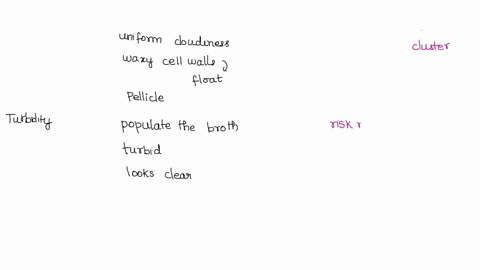 uniform cloudiness
cluster
waxy cell walls,
float
Pellicle
Turbidity
populate the broth
risk r
turbid
looks clear